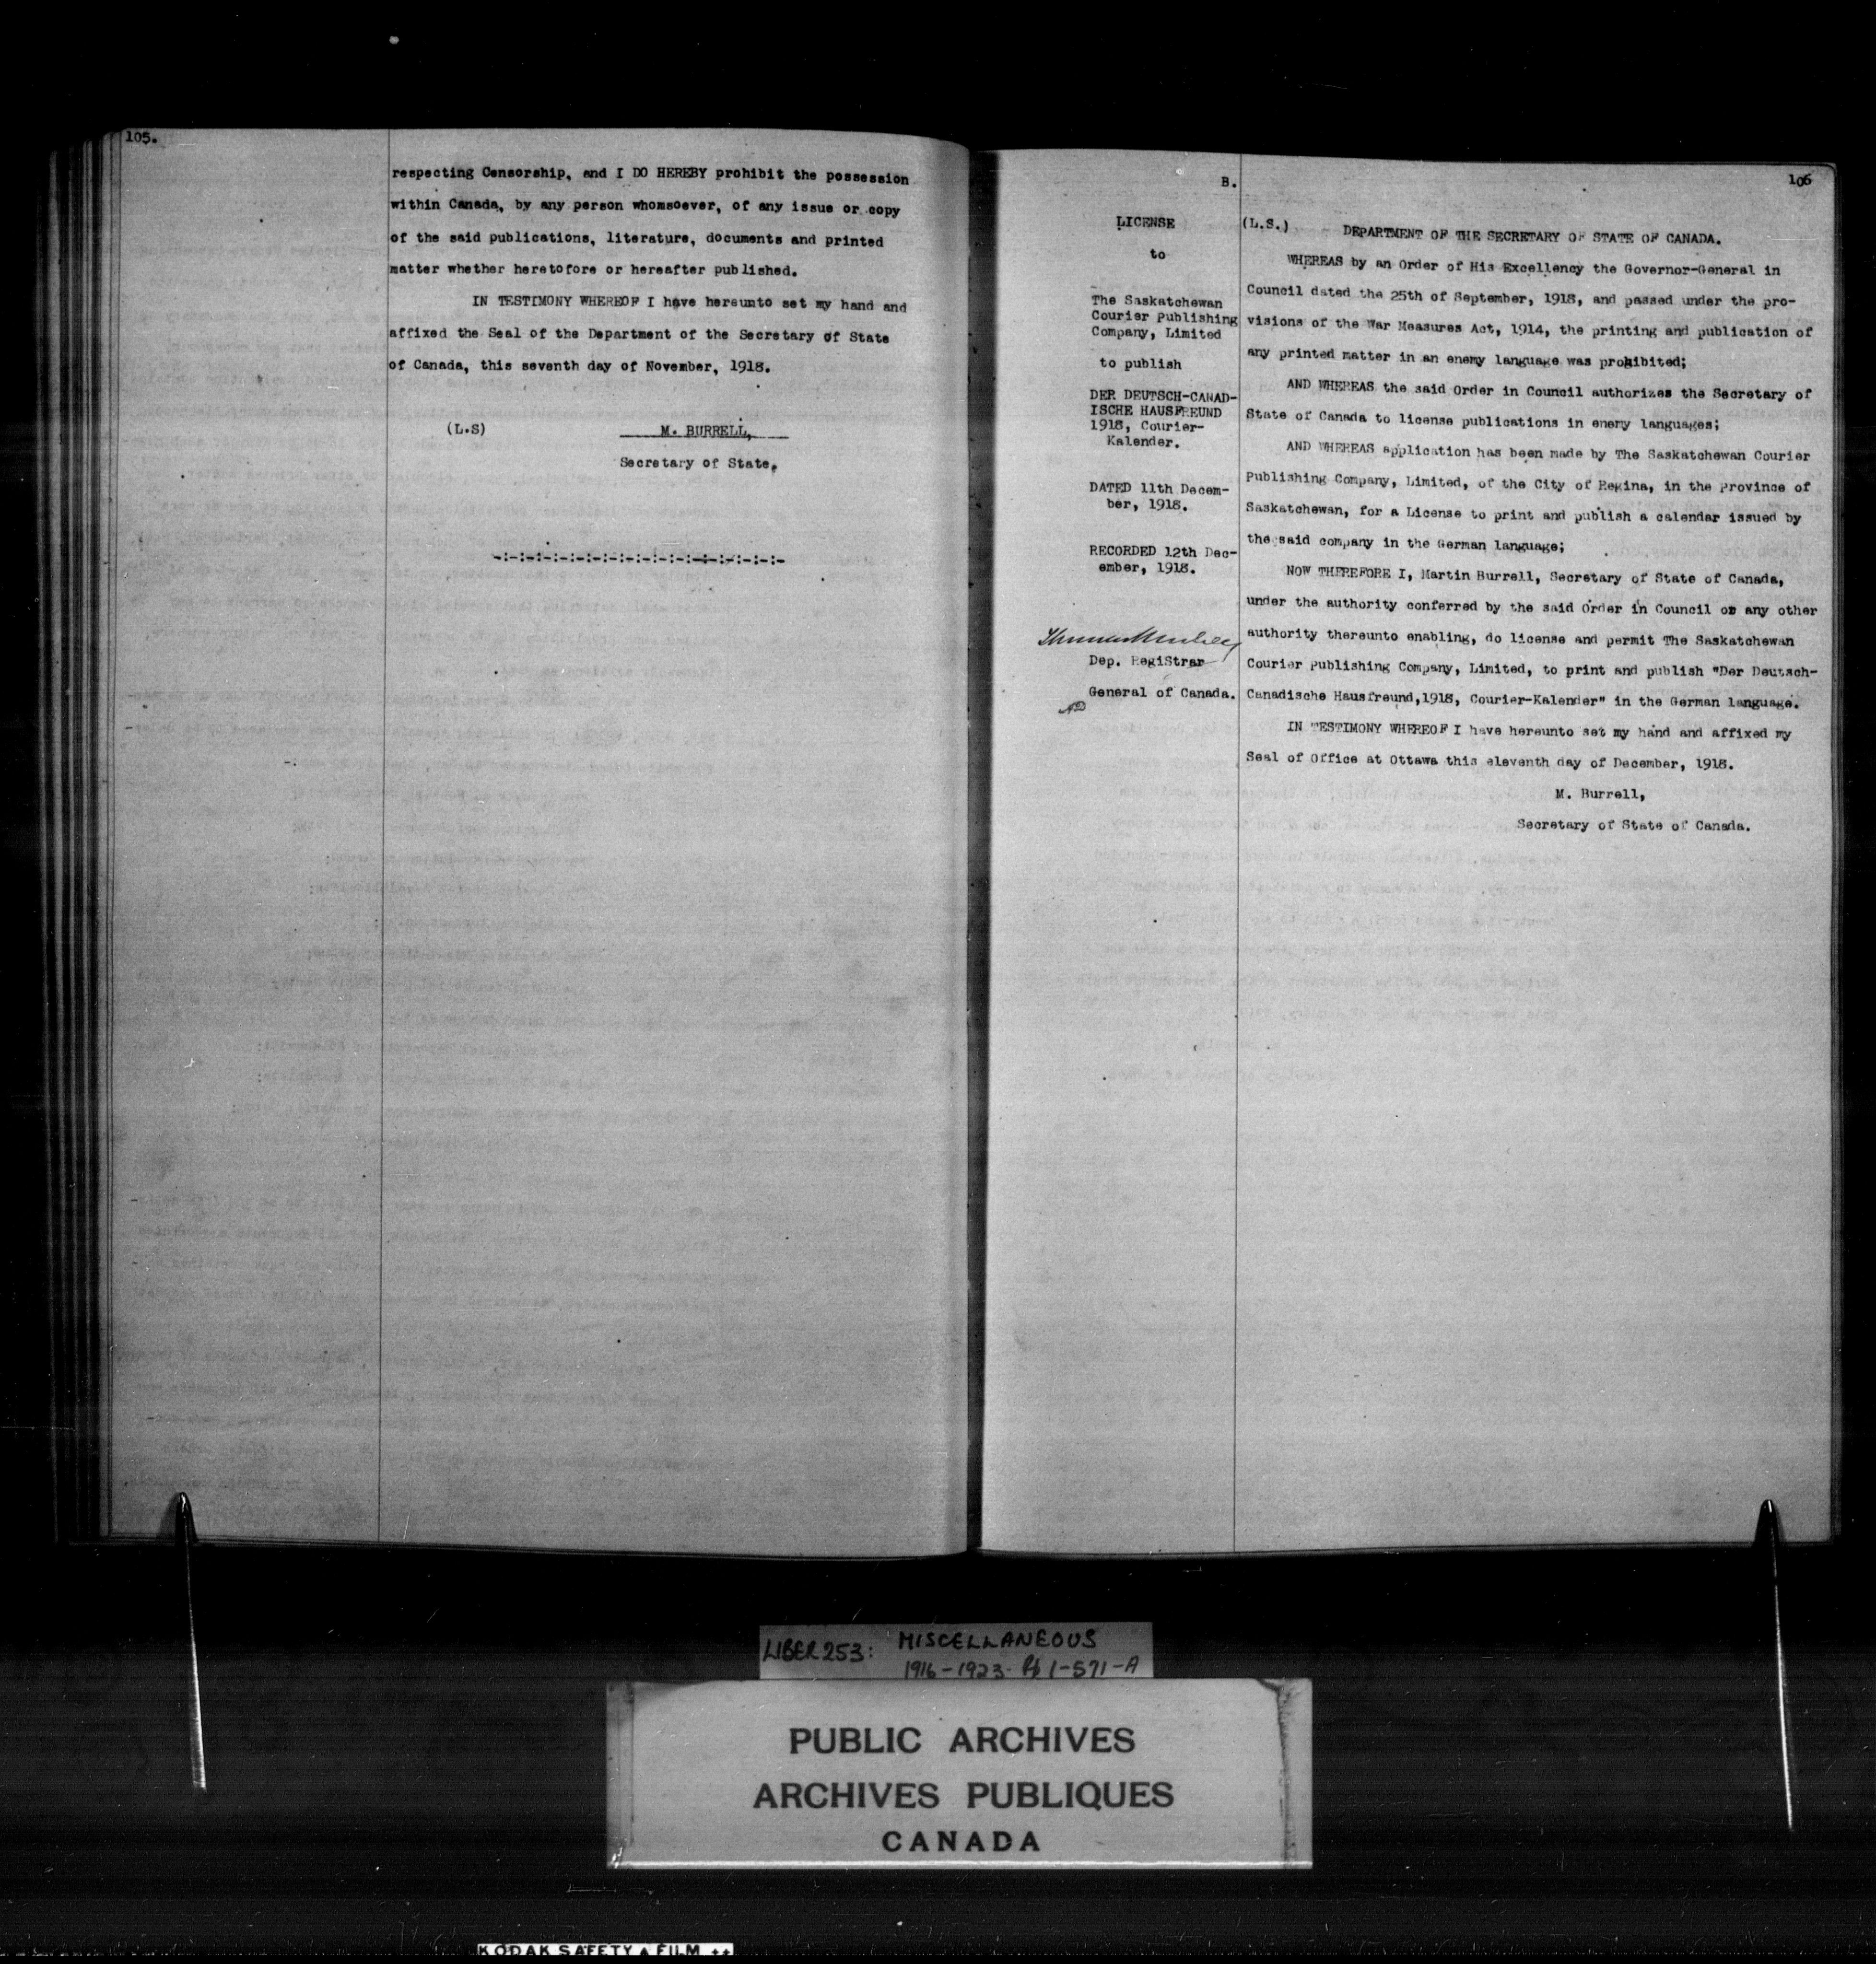 105.
respecting Censorship, and I DO HEREBY prohibit the possession
within Canada, by any person whomsoever, of any issue or copy
of the said publications, literature, documents and printed
matter whether heretofore or hereafter published.
IN TESTIMONY WHEREOF I have hereunto set my hand and
affixed the Seal of the Department of the Secretary of State
of Canada, this seventh day of November, 1918.
(L.S) M. BURRELL,
Secretary of State.
-:-:-:-:-:-:-:-:-:-:-:-:-:-:-:-:-:-:-:-
B.
106
LICENSE
to
The Saskatchewan
Courier Publishing
Company, Limited
to publish
DER DEUTSCH-CANAD-
ISCHE HAUSFREUND
1918, Courier-
Kalender.
DATED 11th Decem-
ber, 1918.
RECORDED 12th Dec-
ember, 1918.
Dep. RegiStrar
General of Canada.
(L.S.) DEPARTMENT OF THE SECRETARY OF STATE OF CANADA.
WHEREAS by an Order of His Excellency the Governor-General in
Council dated the 25th of September, 1918, and passed under the pro-
visions of the War Measures Act, 1914, the printing and publication of
any printed matter in an enemy language was prohibited;
AND WHEREAS the said Order in Council authorizes the Secretary of
State of Canada to license publications in enemy languages;
AND WHEREAS application has been made by The Saskatchewan Courier
Publishing Company, Limited, of the City of Regina, in the Province of
Saskatchewan, for a License to print and publish a calendar issued by
the said company in the German language;
NOW THEREFORE I, Martin Burrell, Secretary of State of Canada,
under the authority conferred by the said Order in Council or any other
authority thereunto enabling, do license and permit The Saskatchewan
Courier Publishing Company, Limited, to print and publish "Der Deutsch-
Canadische Hausfreund,1918, Courier-Kalender" in the German language.
IN TESTIMONY WHEREOF I have hereunto set my hand and affixed my
Seal of Office at Ottawa this eleventh day of December, 1918.
M. Burrell,
Secretary of State of Canada.
LIBER 253: MISCELLANEOUS
1916-1923- Pp 1-571-A
PUBLIC ARCHIVES
ARCHIVES PUBLIQUES
CANADA
KODAK SAFETY FILM